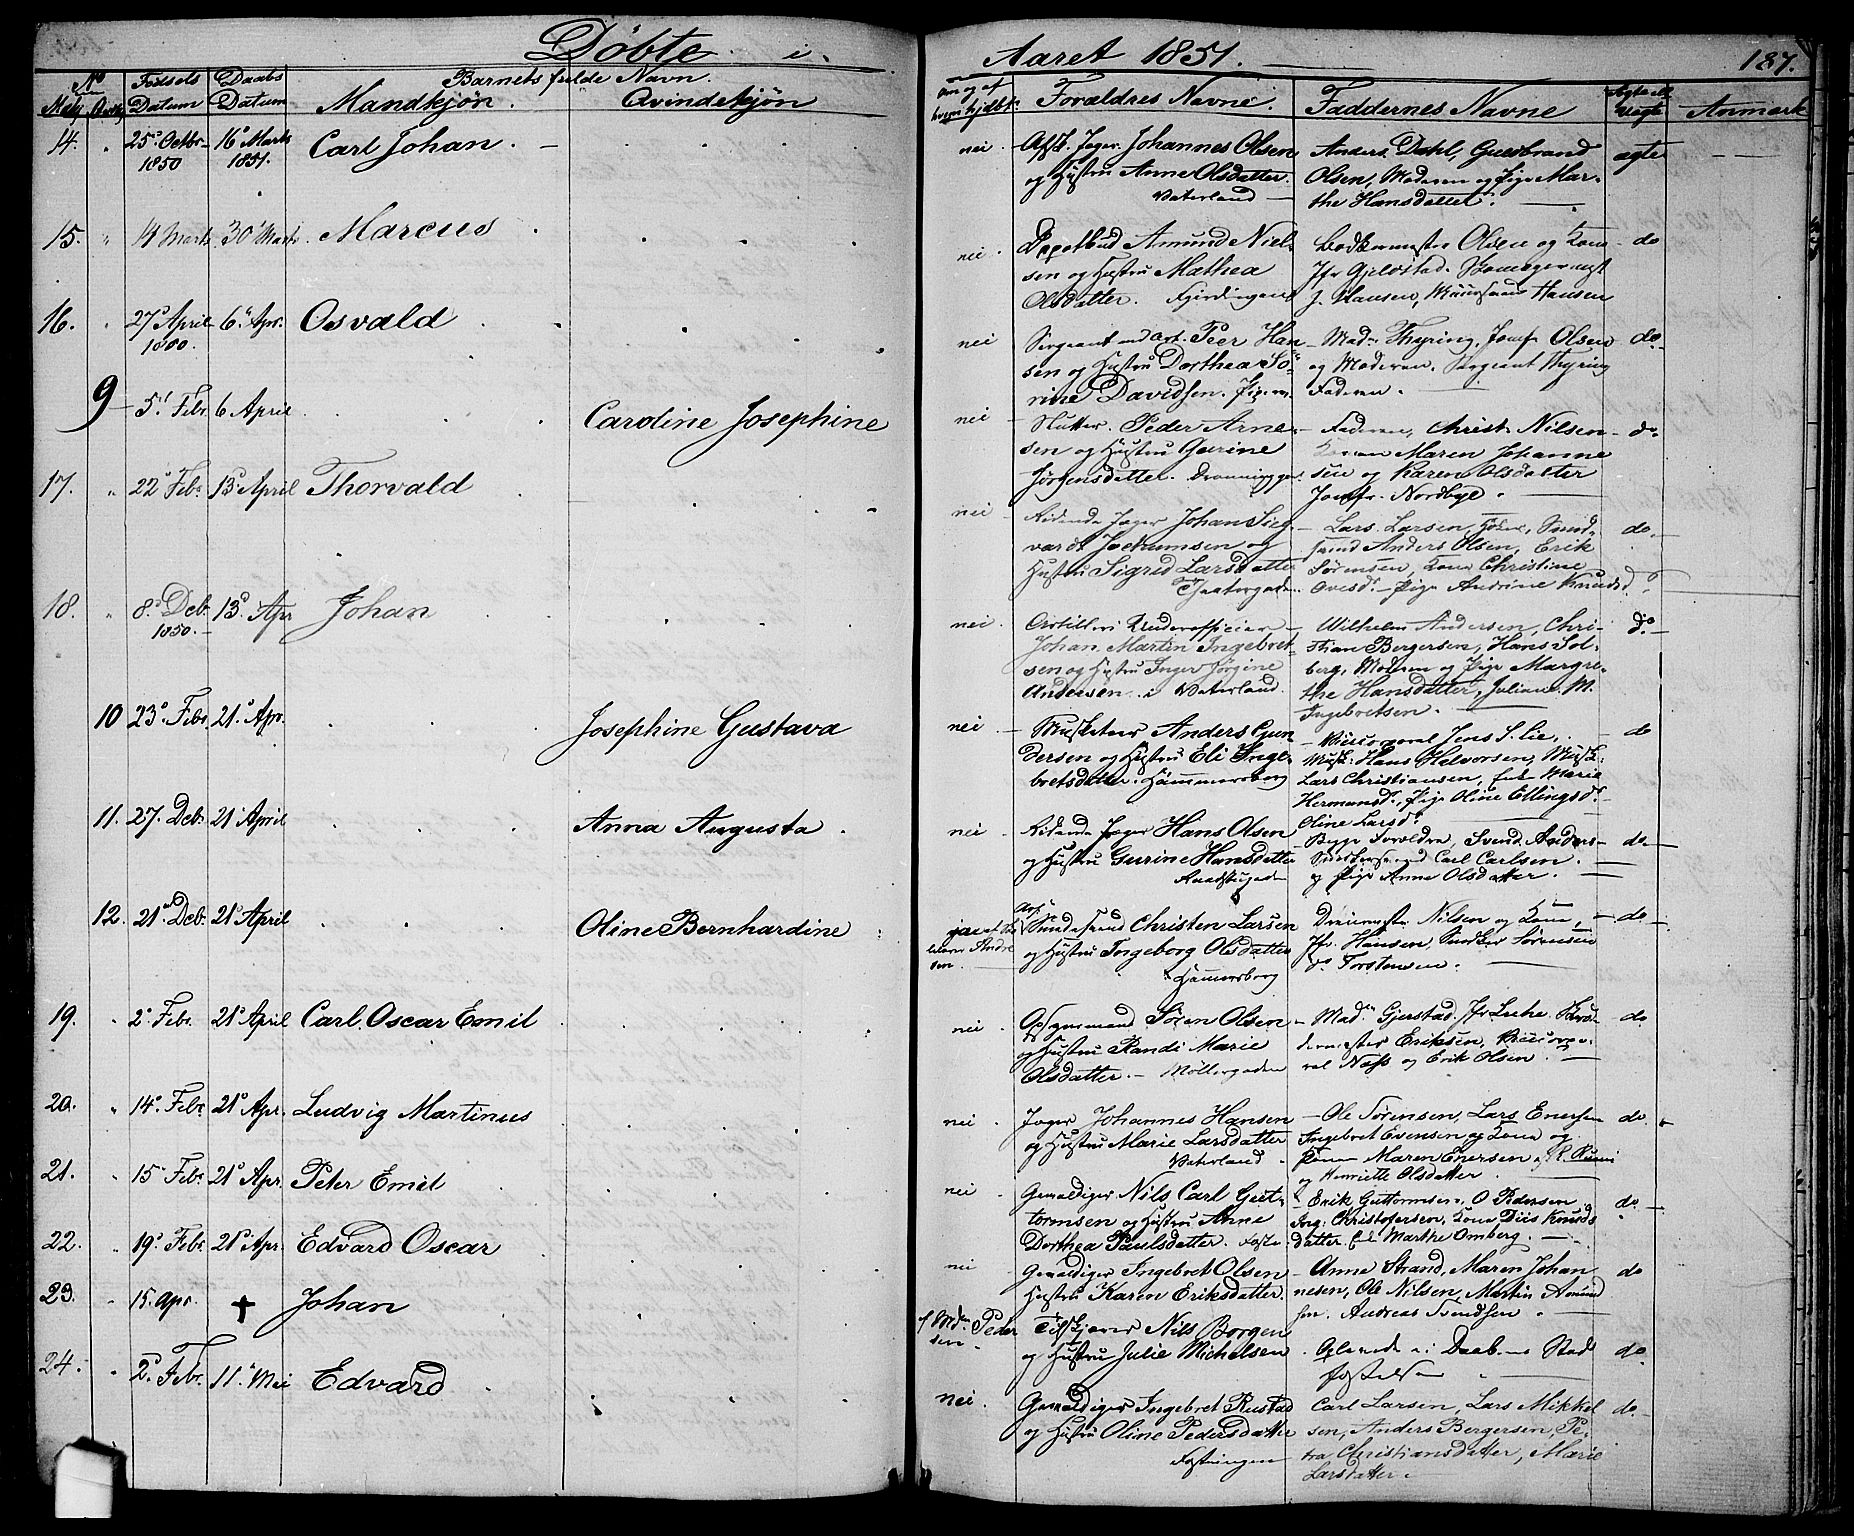 Døbte i Aaret 1851.
187.
No
Mkj. Qvkj.
Fødsels Datum
Daabs Datum
Barnets fulde Navn.
Mandkjøn. Qvindekjøn
Forældres Navne. Faddernes Navne Anmærk
14. " 25de Octbr 1850 16de Marts 1851. Carl Johan.
nei Johannes Olsen
og Hustru Anne Olsdatter.
Vaterland
Anders Dahl, Guldbrand
Olsen, Moderen og Pige Mar-
the Hansdatter.
ægte
15. " 14 Marts 30 Marts Marcus
nei Amund Niel-
sen og Hustru Mathea
Olsdatter. Fjerdingen
Bødkermester Olsen og Kone
Jfr Gjeldstad.
J. Hansen, Hansen
do
16. " 27 April 6te Apr. Osvald
nei Sergeant ved Art. Peer Han
sen og Hustru Dorthea Sø-
rine Davidsen.
Mad. Thyring, Jomfr Olsen
og Moderen. Sergeant Thyring
Faderen.
do
9 5t Febr. 6 April Caroline Josephine
nei Peder Arne-
sen og Hustru Gurine
Jørgensdatter.
Faderen, Christ. Nilsen
Maren Johanne
sen og Karen Olsdatter
Jomfr. Nordbye.
do
17. " 22 Febr. 13 April Thorvald
nei Ridende Jæger Johan Sieg-
vardt Jochumsen og
Hustru Sigrid Larsdatter
Theatergaden.
Lars Larsen,
Anders Olsen, Erik
Sørensen, Kone Christine
Ovesd. Pige Andrine Knudsd.
do
18. " 8. Deb. 1850. 13 Apr Johan
nei Artilleri Underofficier
Johan Martin Ingebret-
sen og Hustru Inger Jørgine
Andersen i Vaterland.
Wilhelm Andersen, Chri-
stian Bergersen, Hans Sol-
berg, Moderen og Pige Margre-
the Hansdatter, Juliane M.
Ingebretsen.
do
10 23 Febr. 21. Apr. Josephine Gustava
nei Musketeer Anders Gun
dersen og Hustru Eli Inge-
bretsdatter. Hammersborg
Jens S. Lie,
Musk. Hans Halvorsen, Musk.
Lars Christiansen, Enke Marie
Hermansd., Pige Oline Ellingsd.
Oline Larsd.
do
11. 27. Deb. 21 April Anna Augusta
nei Ridende Jæger Hans Olsen
og Hustru Gurine Hansdatter
Raadstugaden
Begge Forældre, Svend Anders-
Carl Carlsen.
og Pige Anne Olsdatter.
do
12. 21 Deb. 21 April Oline Bernhardine
Christen Larsen
og Hustru Ingeborg Olsdatter
Hammersborg
Nilsen og Kone
Jfr. Hansen, Snedker Sørensen
do. Torstensen.
do.
19. " 2 Febr. 21 April Carl Oscar Emil
nei Opsynsmand Søren Olsen
og Hustru Randi Marie
Olsdatter. Møllergaden
Mad. Gjerstad.
Eriksen,
ral Næss og Erik Olsen.
do
20. " 14. Febr 21 Apr. Ludvig Martinus
nei Jæger Johannes Hansen
og Hustru Marie Larsdatter
Vaterland
Ole Sørensen, Lars Enersen
Ingebret Evensen og Kone og
Maren Enersen
og Henriette Olsdatter
do
21. " 15 Febr. 21 Apr. Peter Emil
nei Gevaldiger Nils Carl Gut-
tormsen og Hustru Anne
Dorthea Paulsdatter.
Erik Guttormsen. O Pedersen
Ing. Kristofersen, Kone Knuds
datter. Marthe Omberg.
do
22. " 19. Febr 21 Apr. Edvard Oscar
nei Gevaldiger Ingebret Olsen
Hustru Karen Eriksdatter.
Anne Strand, Maren Johan
nesen, Ole Nilsen, Martin Amund
sen. Andreas Svendsen
do
23. " 15. Apr. † Johan
Peder
sen
Nils Borgen
og Hustru Julie Michelsen
do
24. " 2 Febr. 11. Mai Edvard
nei Gevaldiger Ingebret Rustad
og Hustru Oline Pedersdatter
Fæstningen
Carl Larsen, Lars Mikkel
sen, Anders Bergersen, Pe-
tra Christiansdatter, Marie
Larsdatter.
do